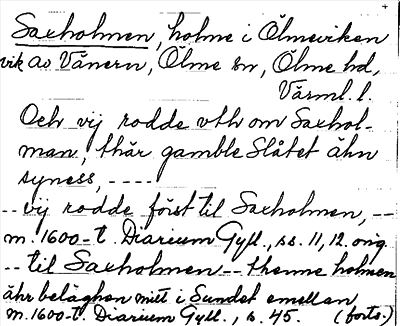 Saxholmen, holme i Ölmeviken
vik av Vänern, Ölme sn, Ölme hd,
Värml. l.
Och vij rodde vth om Saxhol-
man, thär gamble Slåtet ähn
syness, - - - -
-- vij rodde först til Saxholmen, --
m. 1600-t. Diarium Gyll., ss. 11, 12. orig.
-- til Saxholmen -- thenne holmen
ähr beläghen mitt i Sundet emellan
m. 1600-t. Diarium Gyll., s. 45. (forts.)